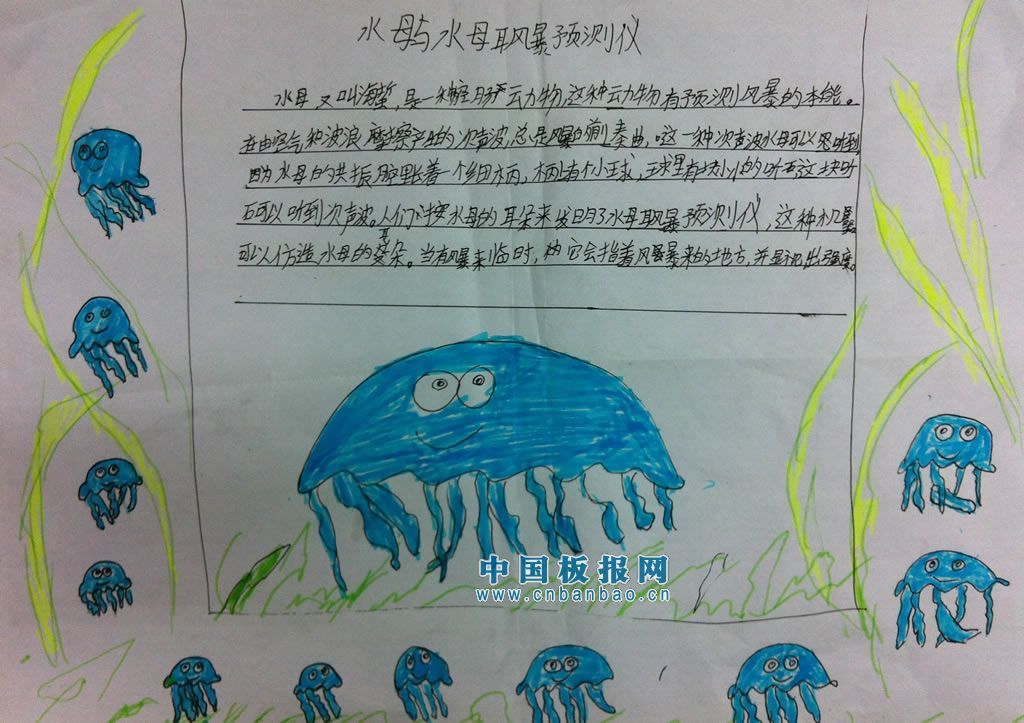 水母与水母耳风暴预测仪
水母又叫海蜇,是一种腔肠动物,这种动物有预测风暴的本能。
在由空气和波浪摩擦产生的次声波,总是风暴的前奏曲。这一种次声波水母可以听到
因为水母的共振腔里长着一个细柄,柄上有个小球,球里有块小的听石这块听
石可以听到次声波。人们按水母的耳朵来发明了水母耳风暴预测仪,这种机器
可以仿造水母的耳朵。当有风暴来临时,它会指着风暴来的地方,并显现出强度。
中国板报网
www.cnbanbao.cn